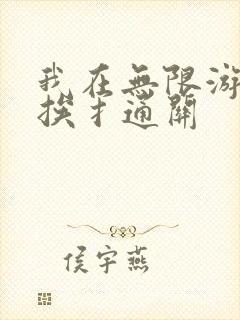 我在無限游
挨才通關
侯宇燕